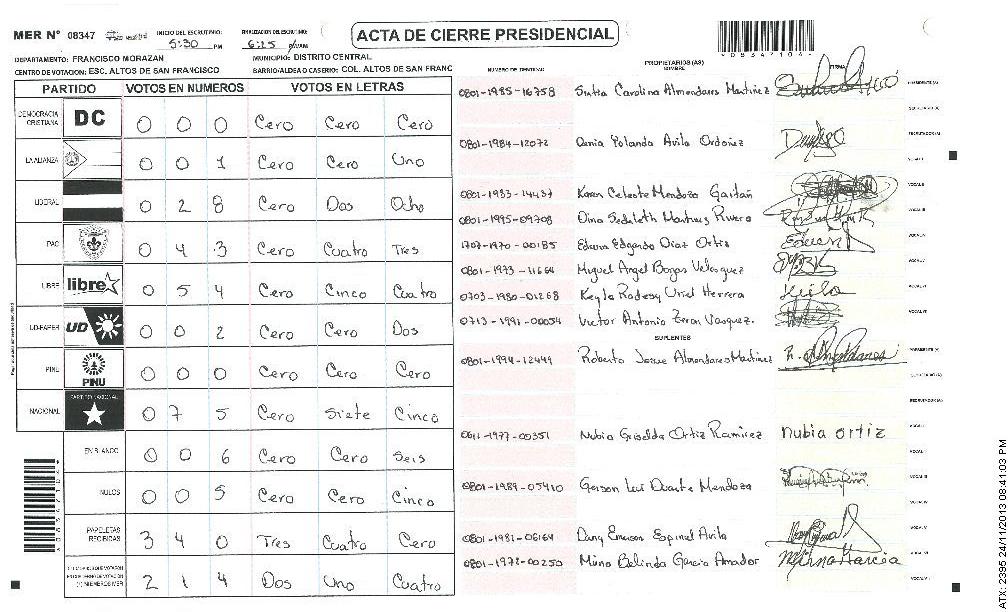 MER Nº 08347 INICIO DEL ESCRUTINIO: 5:30 PM FINALIZACION DEL ESCRUTINIO: 6:25 P/AM ACTA DE CIERRE PRESIDENCIAL
*08347104*
DEPARTAMENTO: FRANCISCO MORAZAN MUNICIPIO: DISTRITO CENTRAL
CENTRO DE VOTACION: ESC. ALTOS DE SAN FRANCISCO BARRIO/ALDEA O CASERIO: COL. ALTOS DE SAN FRANC
PARTIDO VOTOS EN NUMEROS VOTOS EN LETRAS
DEMOCRACIA CRISTIANA DC 0 0 0 Cero Cero Cero
LA ALIANZA 0 0 1 Cero Cero Uno
LIBERAL 0 2 8 Cero Dos Ocho
PAC 0 4 3 Cero Cuatro Tres
LIBRE libre 0 5 4 Cero Cinco Cuatro
UD-FAPER UD 0 0 2 Cero Cero Dos
PINU PINU 0 0 0 Cero Cero Cero
NACIONAL PARTIDO NACIONAL 0 7 5 Cero Siete Cinco
EN BLANCO 0 0 6 Cero Cero Seis
NULOS 0 0 5 Cero Cero Cinco
PAPELETAS RECIBIDAS 3 4 0 Tres Cuatro Cero
2 1 4 Dos Uno Cuatro
NUMERO DE IDENTIDAD PROPIETARIOS (AS) NOMBRE FIRMA
0801-1985-16758 Sintia Carolina Almendares Martinez PRESIDENTE (A)
SECRETARIO (A)
0801-1984-12072 Dania Yolanda Avila Ordoñez ESCRUTADOR (A)
VOCAL I
0801-1983-14437 Karen Celeste Mendoza Gaitan VOCAL II
0801-1995-09708 Dina Sedeleth Martinez Rivera VOCAL III
1707-1970-00185 Edwin Edgardo Diaz Ortiz VOCAL IV
0801-1973-11664 Miguel Angel Borjas Velasquez VOCAL V
0703-1980-01268 Keyla Rodesy Uriel Herrera Keila VOCAL VI
0713-1991-00054 Victor Antonio Zeron Vasquez. VOCAL VII
SUPLENTES
0801-1994-12449 Roberto Josue Almendares Martinez R. Almendares PRESIDENTE (A)
SECRETARIO (A)
ESCRUTADOR (A)
0611-1977-00351 Nubia Griselda Ortiz Ramirez nubia ortiz VOCAL I
VOCAL II
0801-1989-05410 Gerson Lui Duarte Mendoza VOCAL III
VOCAL IV
0801-1981-06164 Dany Emerson Espinel Avila VOCAL V
0801-1972-00250 Mirna Belinda Garcia Amador Mirna Garcia VOCAL VI
VOCAL VII
ATX: 2395 24/11/2013 08:41:03 PM